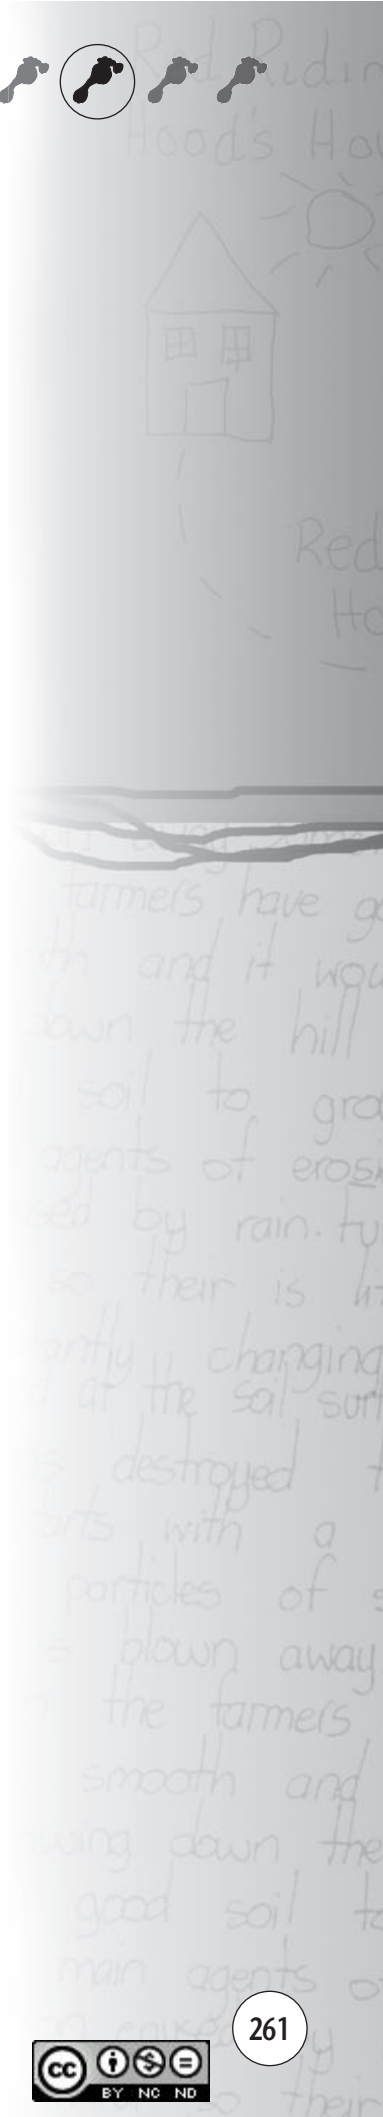 Red Ridin
Hood's Hou
Red
Ho
farmers have go
and it wou
down the hill
soil to gro
agents of erosi
by rain. tu
so their is lit
changing
at the soil surf
destroyed t
with a
particles of s
blown away
the farmers
smooth and
down the
good soil to
main agents o
261
by
cc
BY NC ND
so their